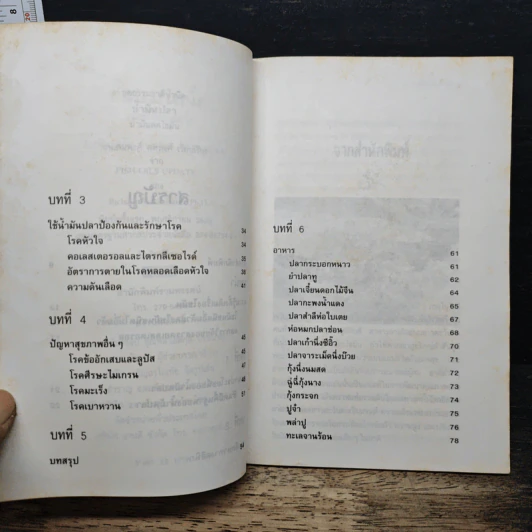 บทที่ 3
ใช้น้ำมันปลาป้องกันและรักษาโรค 34
โรคหัวใจ 34
คอเลสเตอรอลและไตรกลีเซอไรด์ 35
อัตราการตายในโรคหลอดเลือดหัวใจ 39
ความดันเลือด 41
บทที่ 4
ปัญหาสุขภาพอื่น ๆ 45
โรคข้ออักเสบและลูปัส 45
โรคศีรษะไมเกรน
โรคมะเร็ง
โรคเบาหวาน 51
บทที่ 5
บทสรุป 54
บทที่ 6
อาหาร 61
ปลากระบอกหนาว 61
ยำปลาทู 62
ปลาเจี๋ยนดอกไม้จีน 64
ปลากะพงน้ำแดง 66
ปลาสำลีห่อใบเตย 68
ห่อหมกปลาช่อน 69
ปลาเก๋านึ่งซีอิ๊ว 70
ปลาจาระเม็ดนึ่งบ๊วย 71
กุ้งนึ่งนมสด 72
ฉู่ฉี่กุ้งนาง 73
กุ้งกระจก 74
ปูจ๋า 75
พล่าปู 76
ทะเลจานร้อน 78